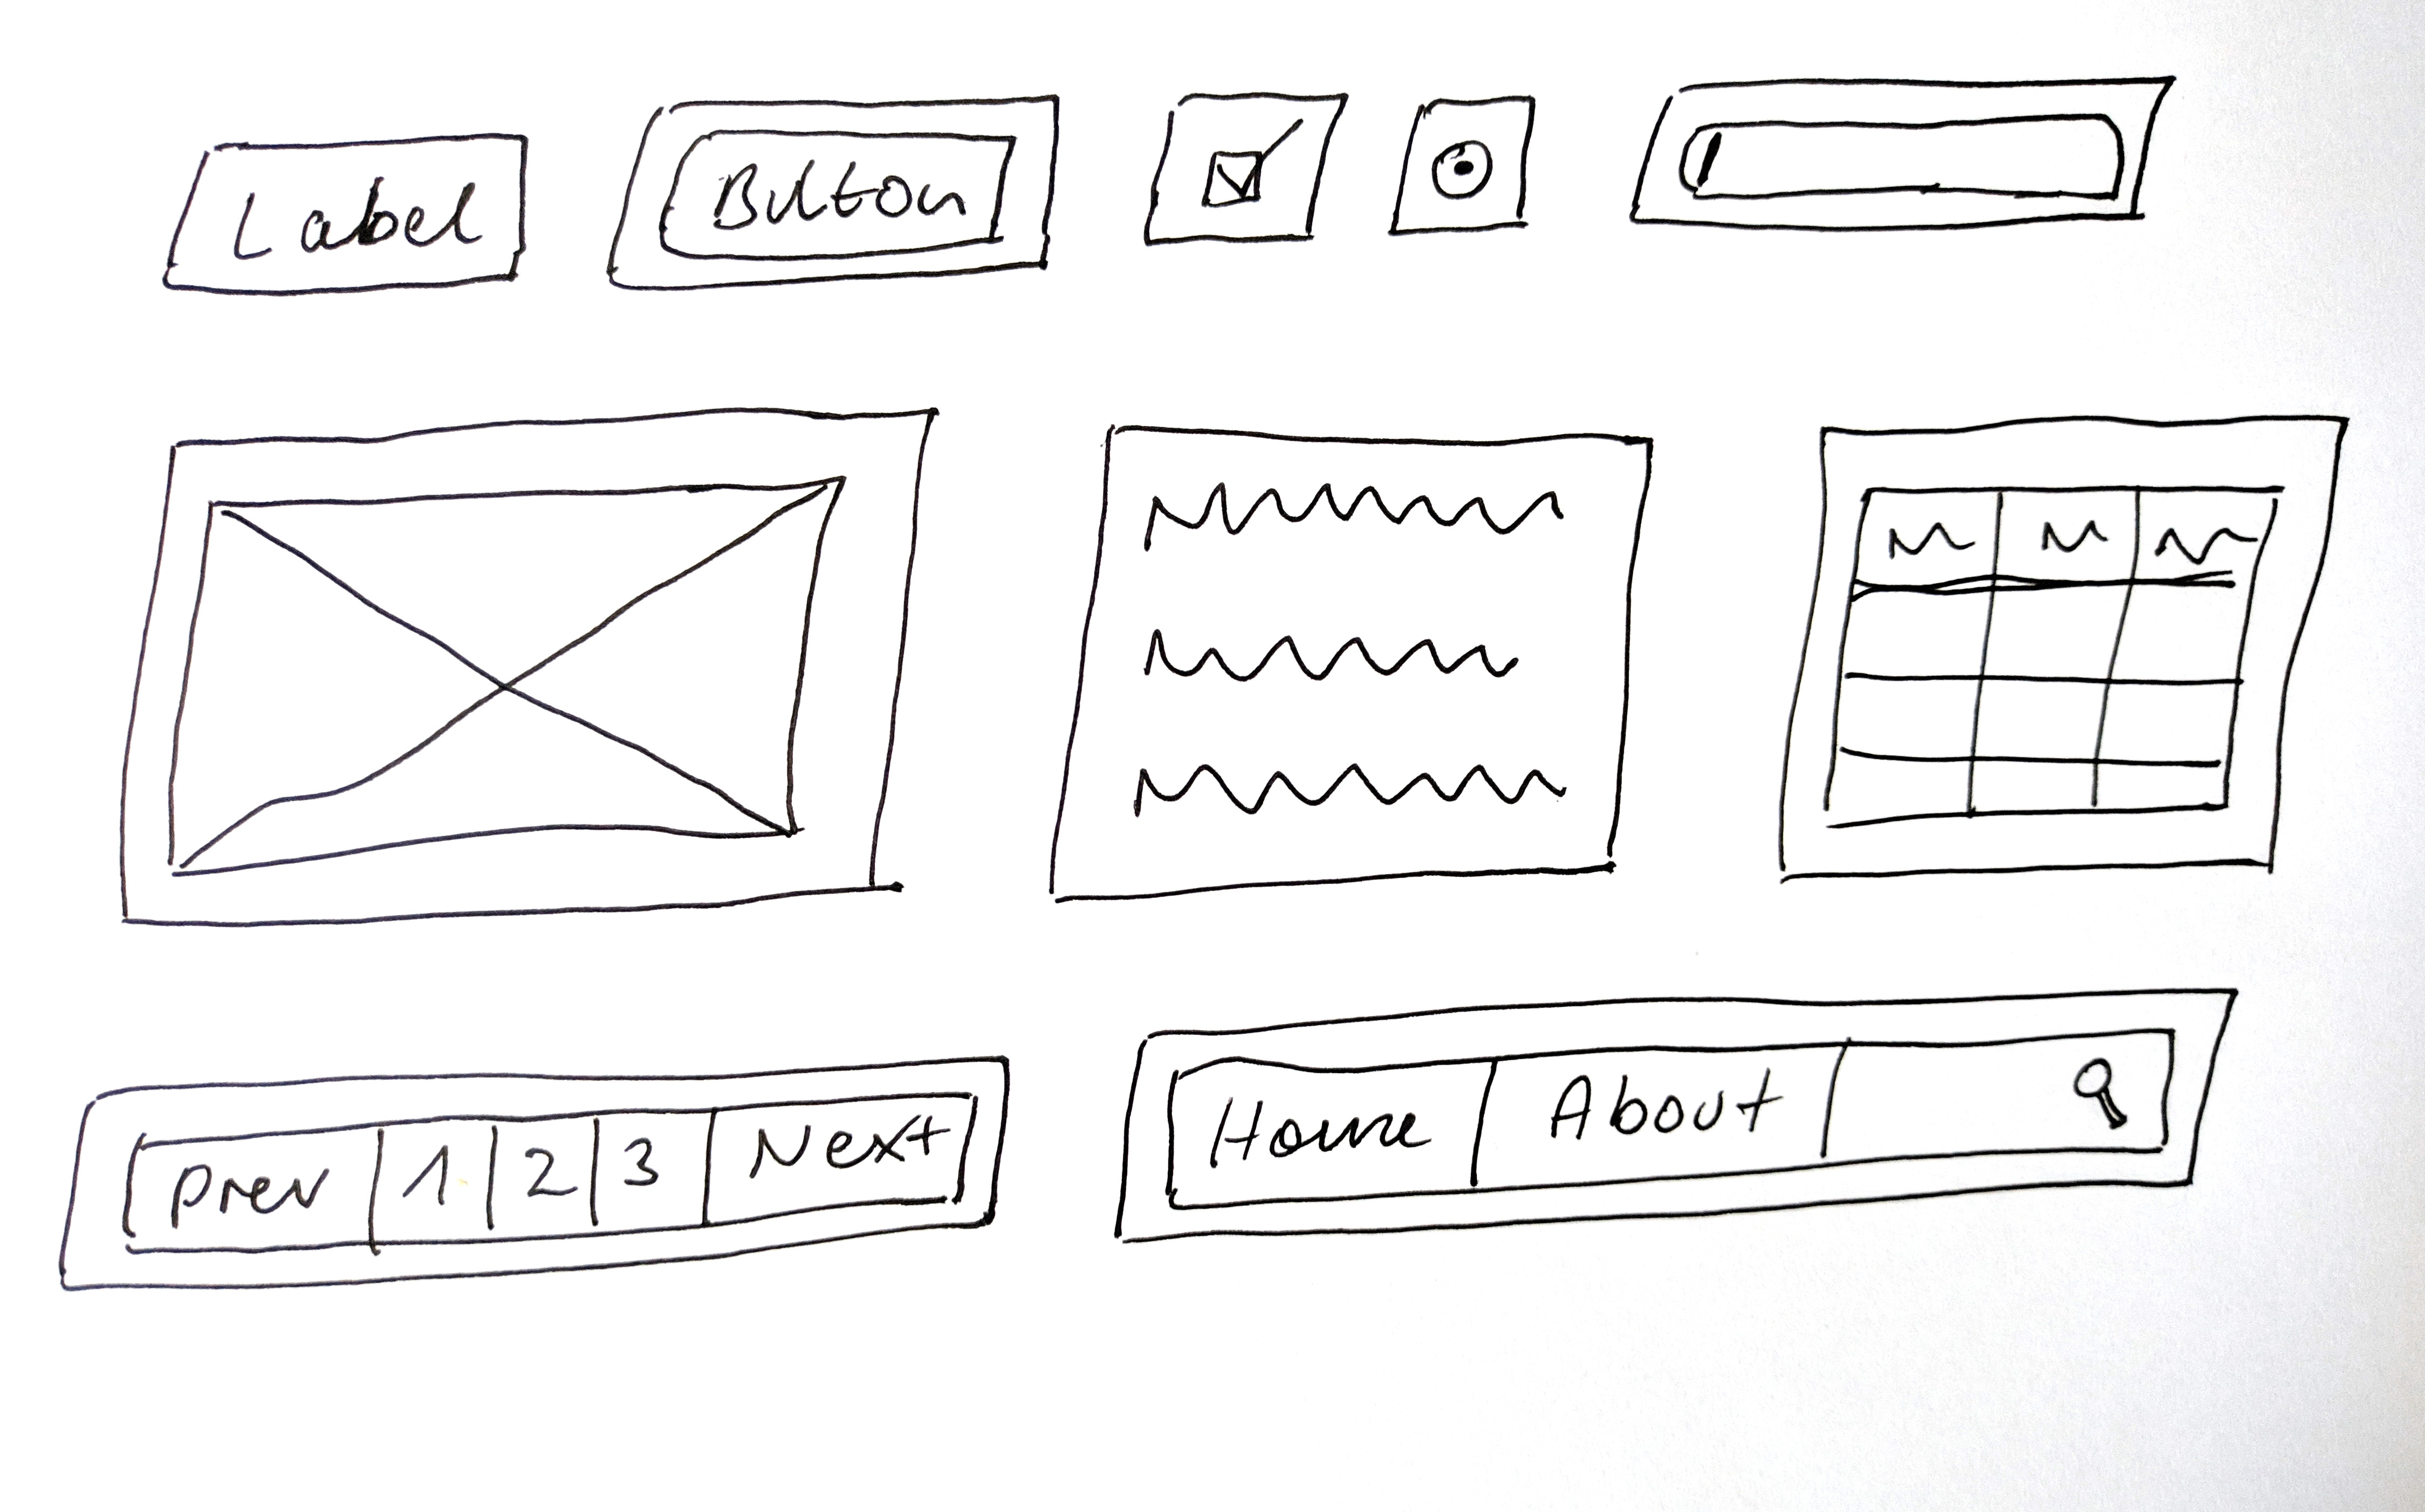 Label
Button
Prev 1 2 3 Next
Home About